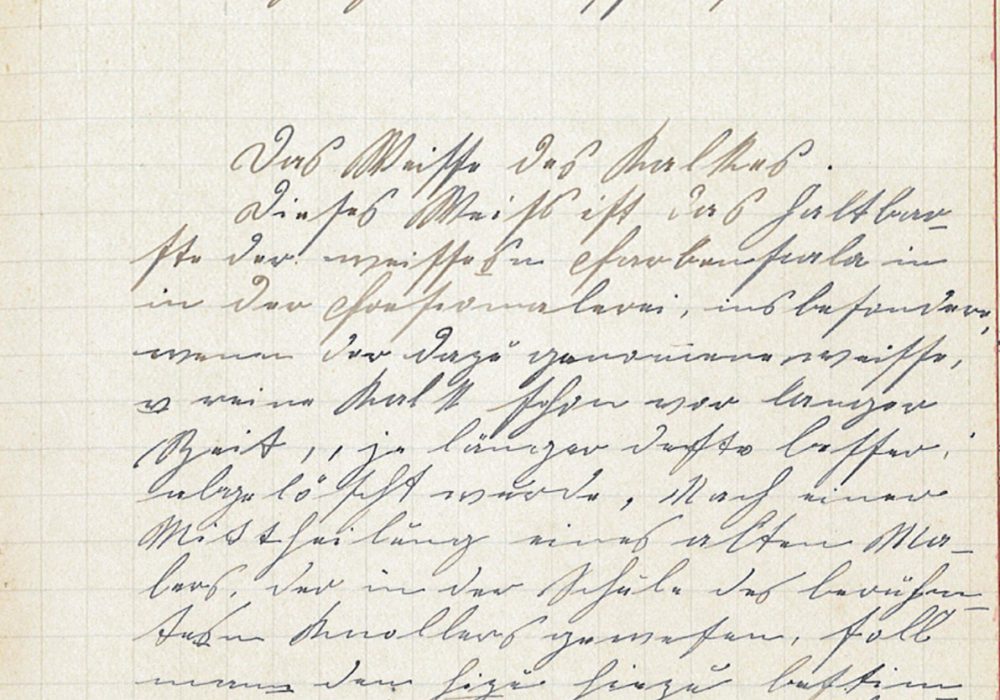 Das Weisse des Kalkes.
Dieses Weiss ist das haltbar-
ste der weissesn Farbenskala in
in der Freskomalerei, insbesondere,
wenn der dazu genommene weisse,
u reine Kalk schon vor langer
Zeit, „ je länger desto besser,
abgelöscht wurde. Nach einer
Mittheilung eines alten Ma-
lers, der in der Schule des berühm-
tesn Knollers gewesen, soll
man den hiezu bestim-